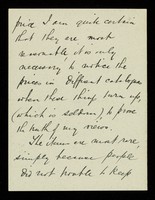 price I am quite certain
that they are most
reasonable, it is only
necessary to notice the
prices in different catalogues
when these things turn up,
(which is seldom), to prove
the truth of my
The items are most rare,
simply because people
did not trouble to keep